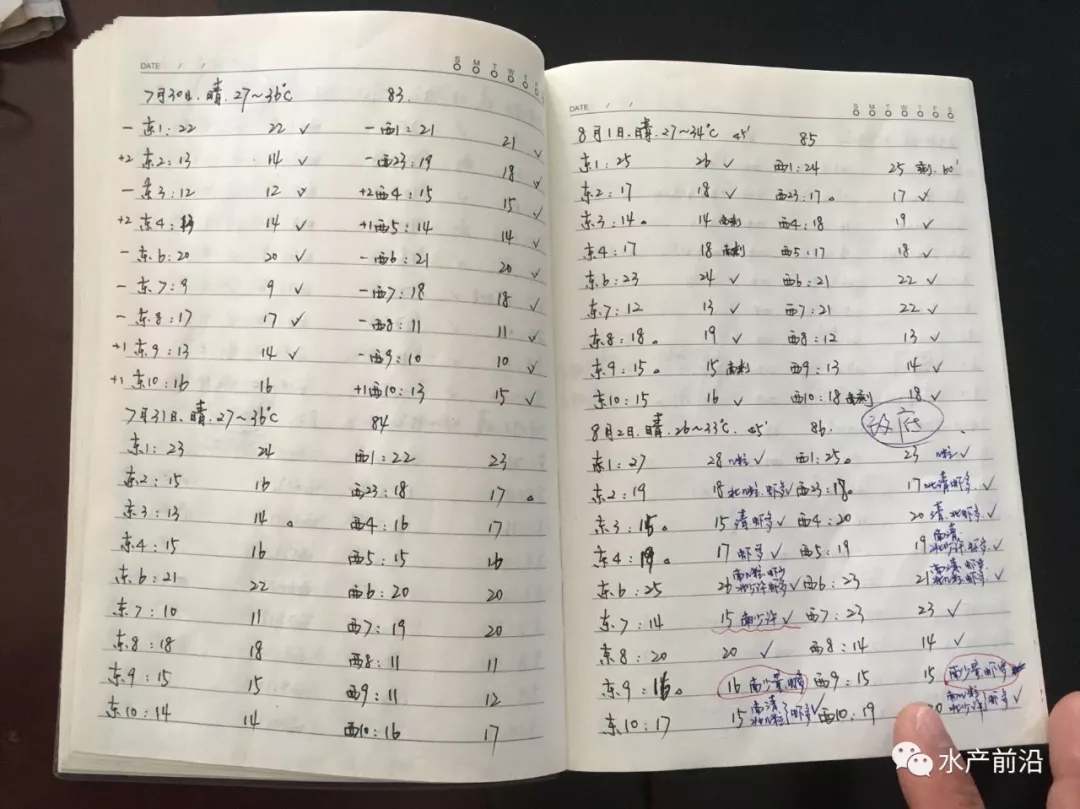 DATE / /
S M T W T
7月30日.晴.27~36℃ 83.
- 东1:22 22 ✓ -西1:21 21 ✓
+2 东2:13 14 ✓ -西23:19 18 ✓
- 东3:12 12 ✓ +2西4:15 15 ✓
+2 东4: 14 ✓ +1西5:14 14 ✓
- 东6:20 20 ✓ -西6:21 20 ✓
- 东7:9 9 ✓ -西7:18 18 ✓
- 东8:17 17 ✓ -西8:11 11 ✓
+1 东9:13 14 ✓ -西9:10 10 ✓
+1 东10:16 16 +1西10:13 15 ✓
7月31日.晴.27~36℃ 84
东1:23 24 西1:22 23
东2:15 16 西23:18 17。
东3:13 14。 西4:16 17
东4:15 16 西5:15 16
东6:21 22 西6:20 20
东7:10 11 西7:19 20
东8:18 18 西8:11 11
东9:15 15 西9:11 12
东10:14 14 西10:16 17
DATE / /
S M T W T F S
8月1日.晴.27~34℃ 45' 85
东1:25 26 ✓ 西1:24 25 剩.60'
东2:17 18 ✓ 西23:17。 17 ✓
东3:14。 14 南剩 西4:18 19 ✓
东4:17 18 南剩 西5:17 18 ✓
东6:23 24 ✓ 西6:21 22 ✓
东7:12 13 ✓ 西7:21 22 ✓
东8:18。 19 ✓ 西8:12 13 ✓
东9:15。 15 南剩 西9:13 14 ✓
东10:15 16 ✓ 西10:18 南剩 18 ✓
8月2日.晴.26~33℃.45' 86. 改底
东1:27 28 ✓ 西1:25。 23 ✓
东2:19 18 虾多✓ 西23:18。 17 北清虾多✓
东3:15。 15 清虾多✓ 西4:20 20 清.北虾多✓
东4: 17 虾多✓ 西5:19 19 南清 北少许.虾多✓
东6:25 26 北少许虾多✓ 西6:23 21 虾多✓
东7:14 15 南少许✓ 西7:23 23 ✓
东8:20 20 ✓ 西8:14 14 ✓
东9:16。 16 南少量.虾多 西9:15 15 西少量.虾多
东10:17 15 南清 虾多✓ 西10:19 20 北少许 虾多✓
水产前沿